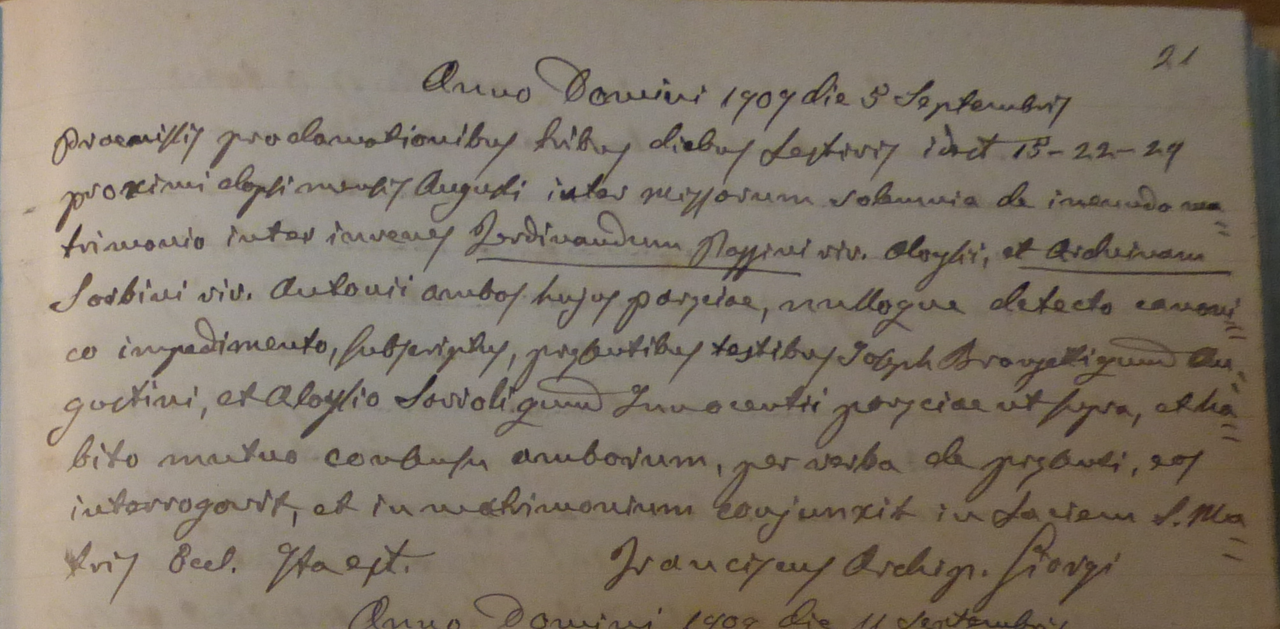 21
Anno Domini 1909 die 5 Septembris
Praemissis proclamationibus tribus diebus festivis idest 15-22-29
proximi elapsi mensis Augusti inter missarum solemnia de ineundo ma=
trimonio inter iuvenes Ferdinandum Passini viv. Aloysii, et Archinam
Sorbini viv. Antonii ambos hujus parociae, nulloque detecto canoni=
co impedimento, subscriptus, psentibus testibus Joseph Bravetti qund Au=
gustini, et Aloysio Savioli qund Innocentii parociae ut supra, et ha=
bito mutuo consensu amborum, per verba de psenti, eos
interrogavit, et in matrimonium conjunxit in faciem S. Ma=
tris Eccl. Ita est. Franciscus Archip. Giorgi
Anno Domini 1909 die 11 Septembris